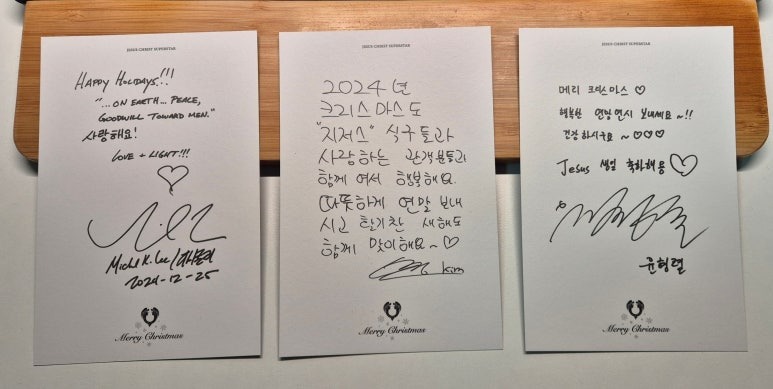 JESUS CHRIST SUPERSTAR
HAPPY HOLIDAYS!!!
"...ON EARTH... PEACE,
GOODWILL TOWARD MEN."
사랑해요!
LOVE + LIGHT!!!
Michl K. Lee/
2024-12-25
Merry Christmas
JESUS CHRIST SUPERSTAR
2024년
크리스마스도
"지저스" 식구들과
사랑하는 관객분들과
함께 여서 행복해요.
따뜻하게 연말 보내
시고 활기찬 새해도
함께 맞이해요~♡
Kim
Merry Christmas
JESUS CHRIST SUPERSTAR
메리 크리스마스 ♡
행복한 연말연시 보내세요~!!
건강하시구요 ~♡♡♡
Jesus 생일 축하해용 ♡
윤형렬
Merry Christmas